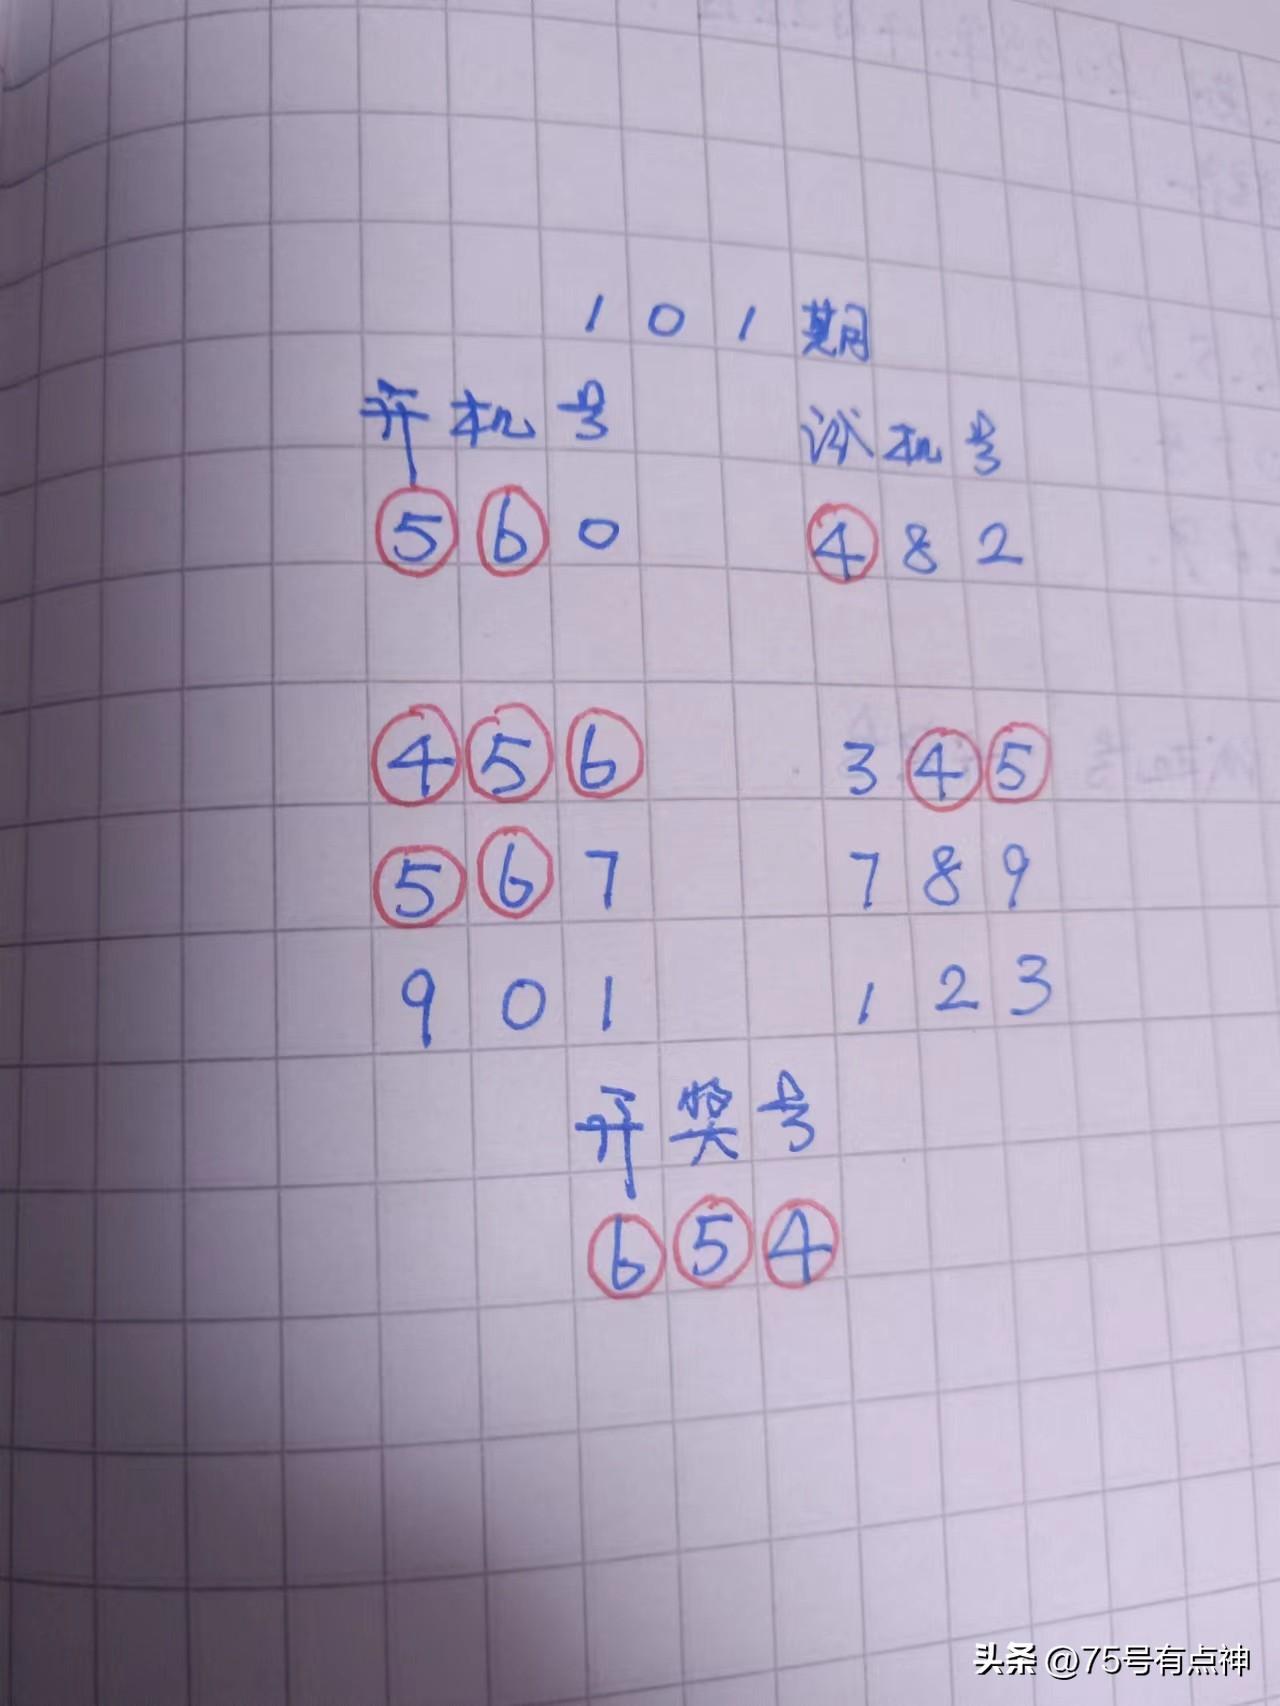 101期
开机号 试机号
560 482
456 345
567 789
901 123
开奖号
654
头条 @75号有点神